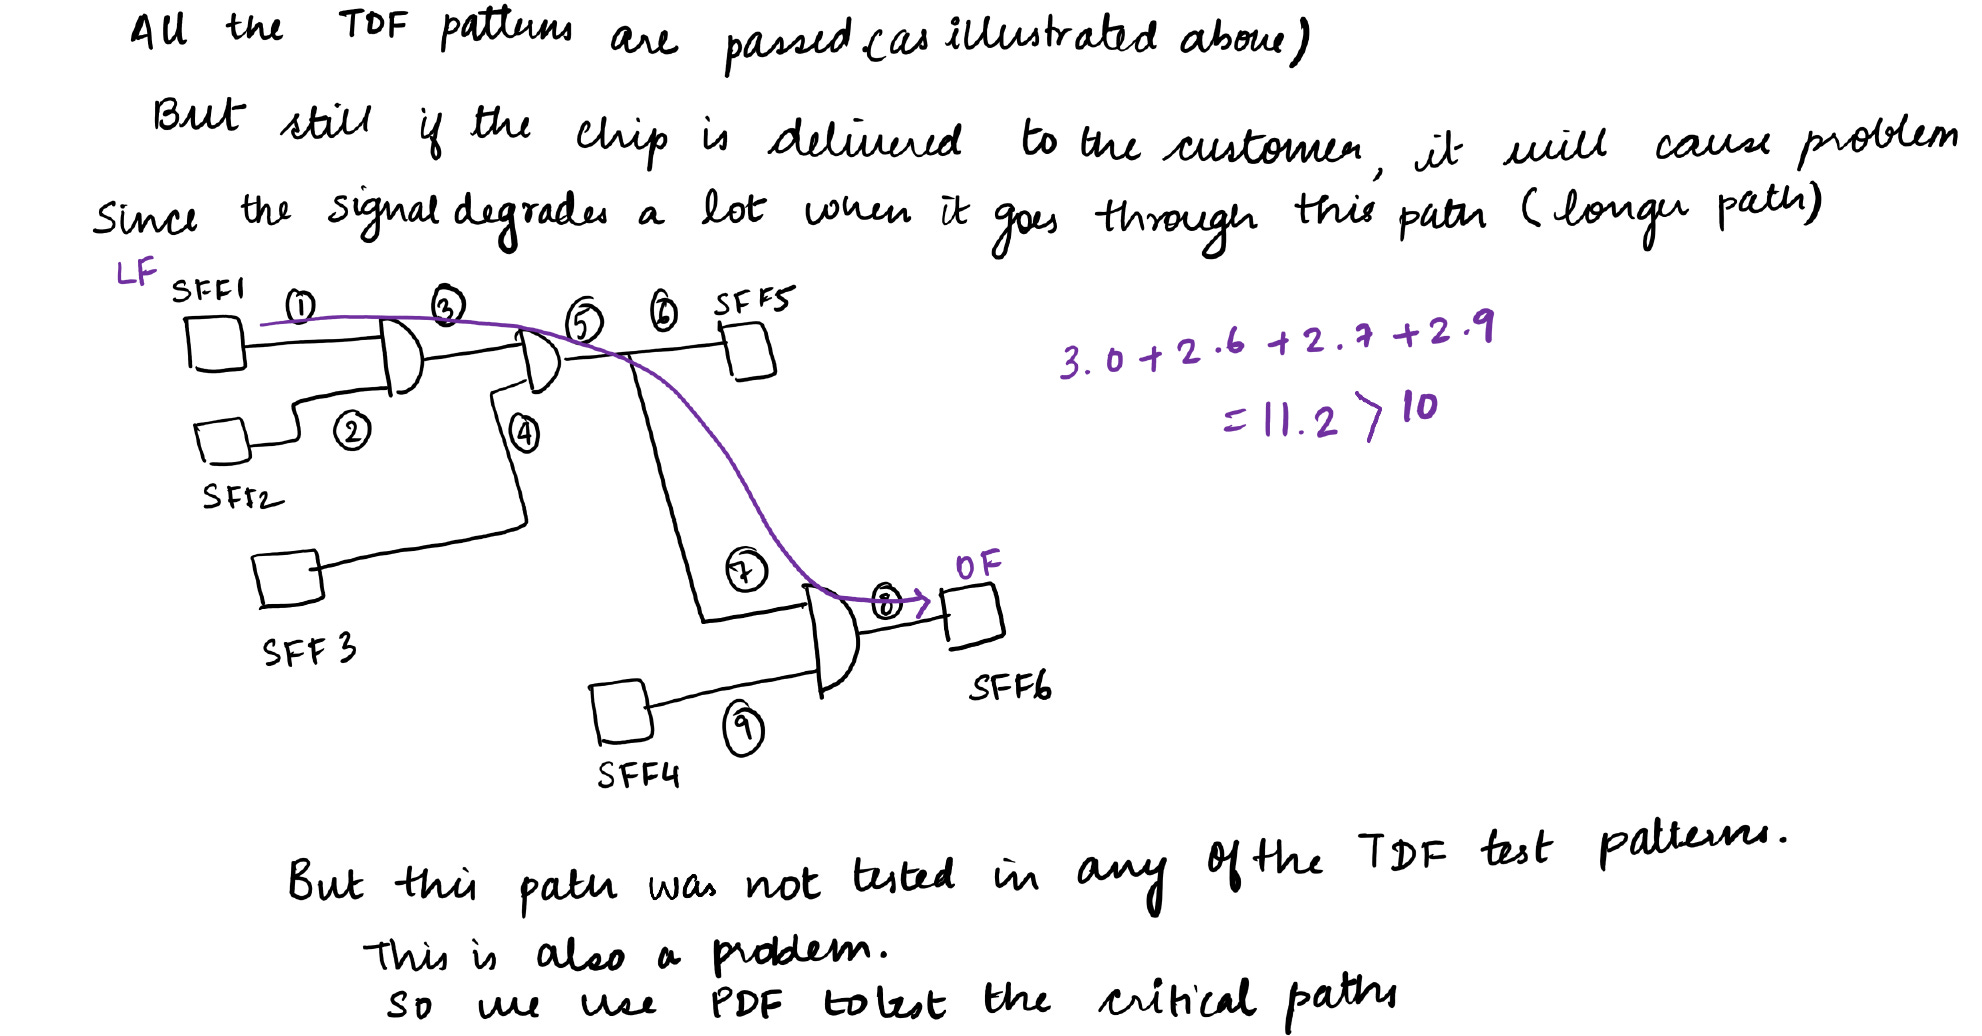 All the TDF patterns are passed (as illustrated above)
But still if the chip is delivered to the customer, it will cause problem
Since the signal degrades a lot when it goes through this path (longer path)
LF
SFF1
①
③
⑤
⑥
SFF5
3.0 + 2.6 + 2.7 + 2.9
= 11.2 > 10
②
④
SFF2
⑦
OF
⑧
SFF3
SFF6
⑨
SFF4
But this path was not tested in any of the TDF test patterns.
This is also a problem.
So we use PDF to test the critical paths